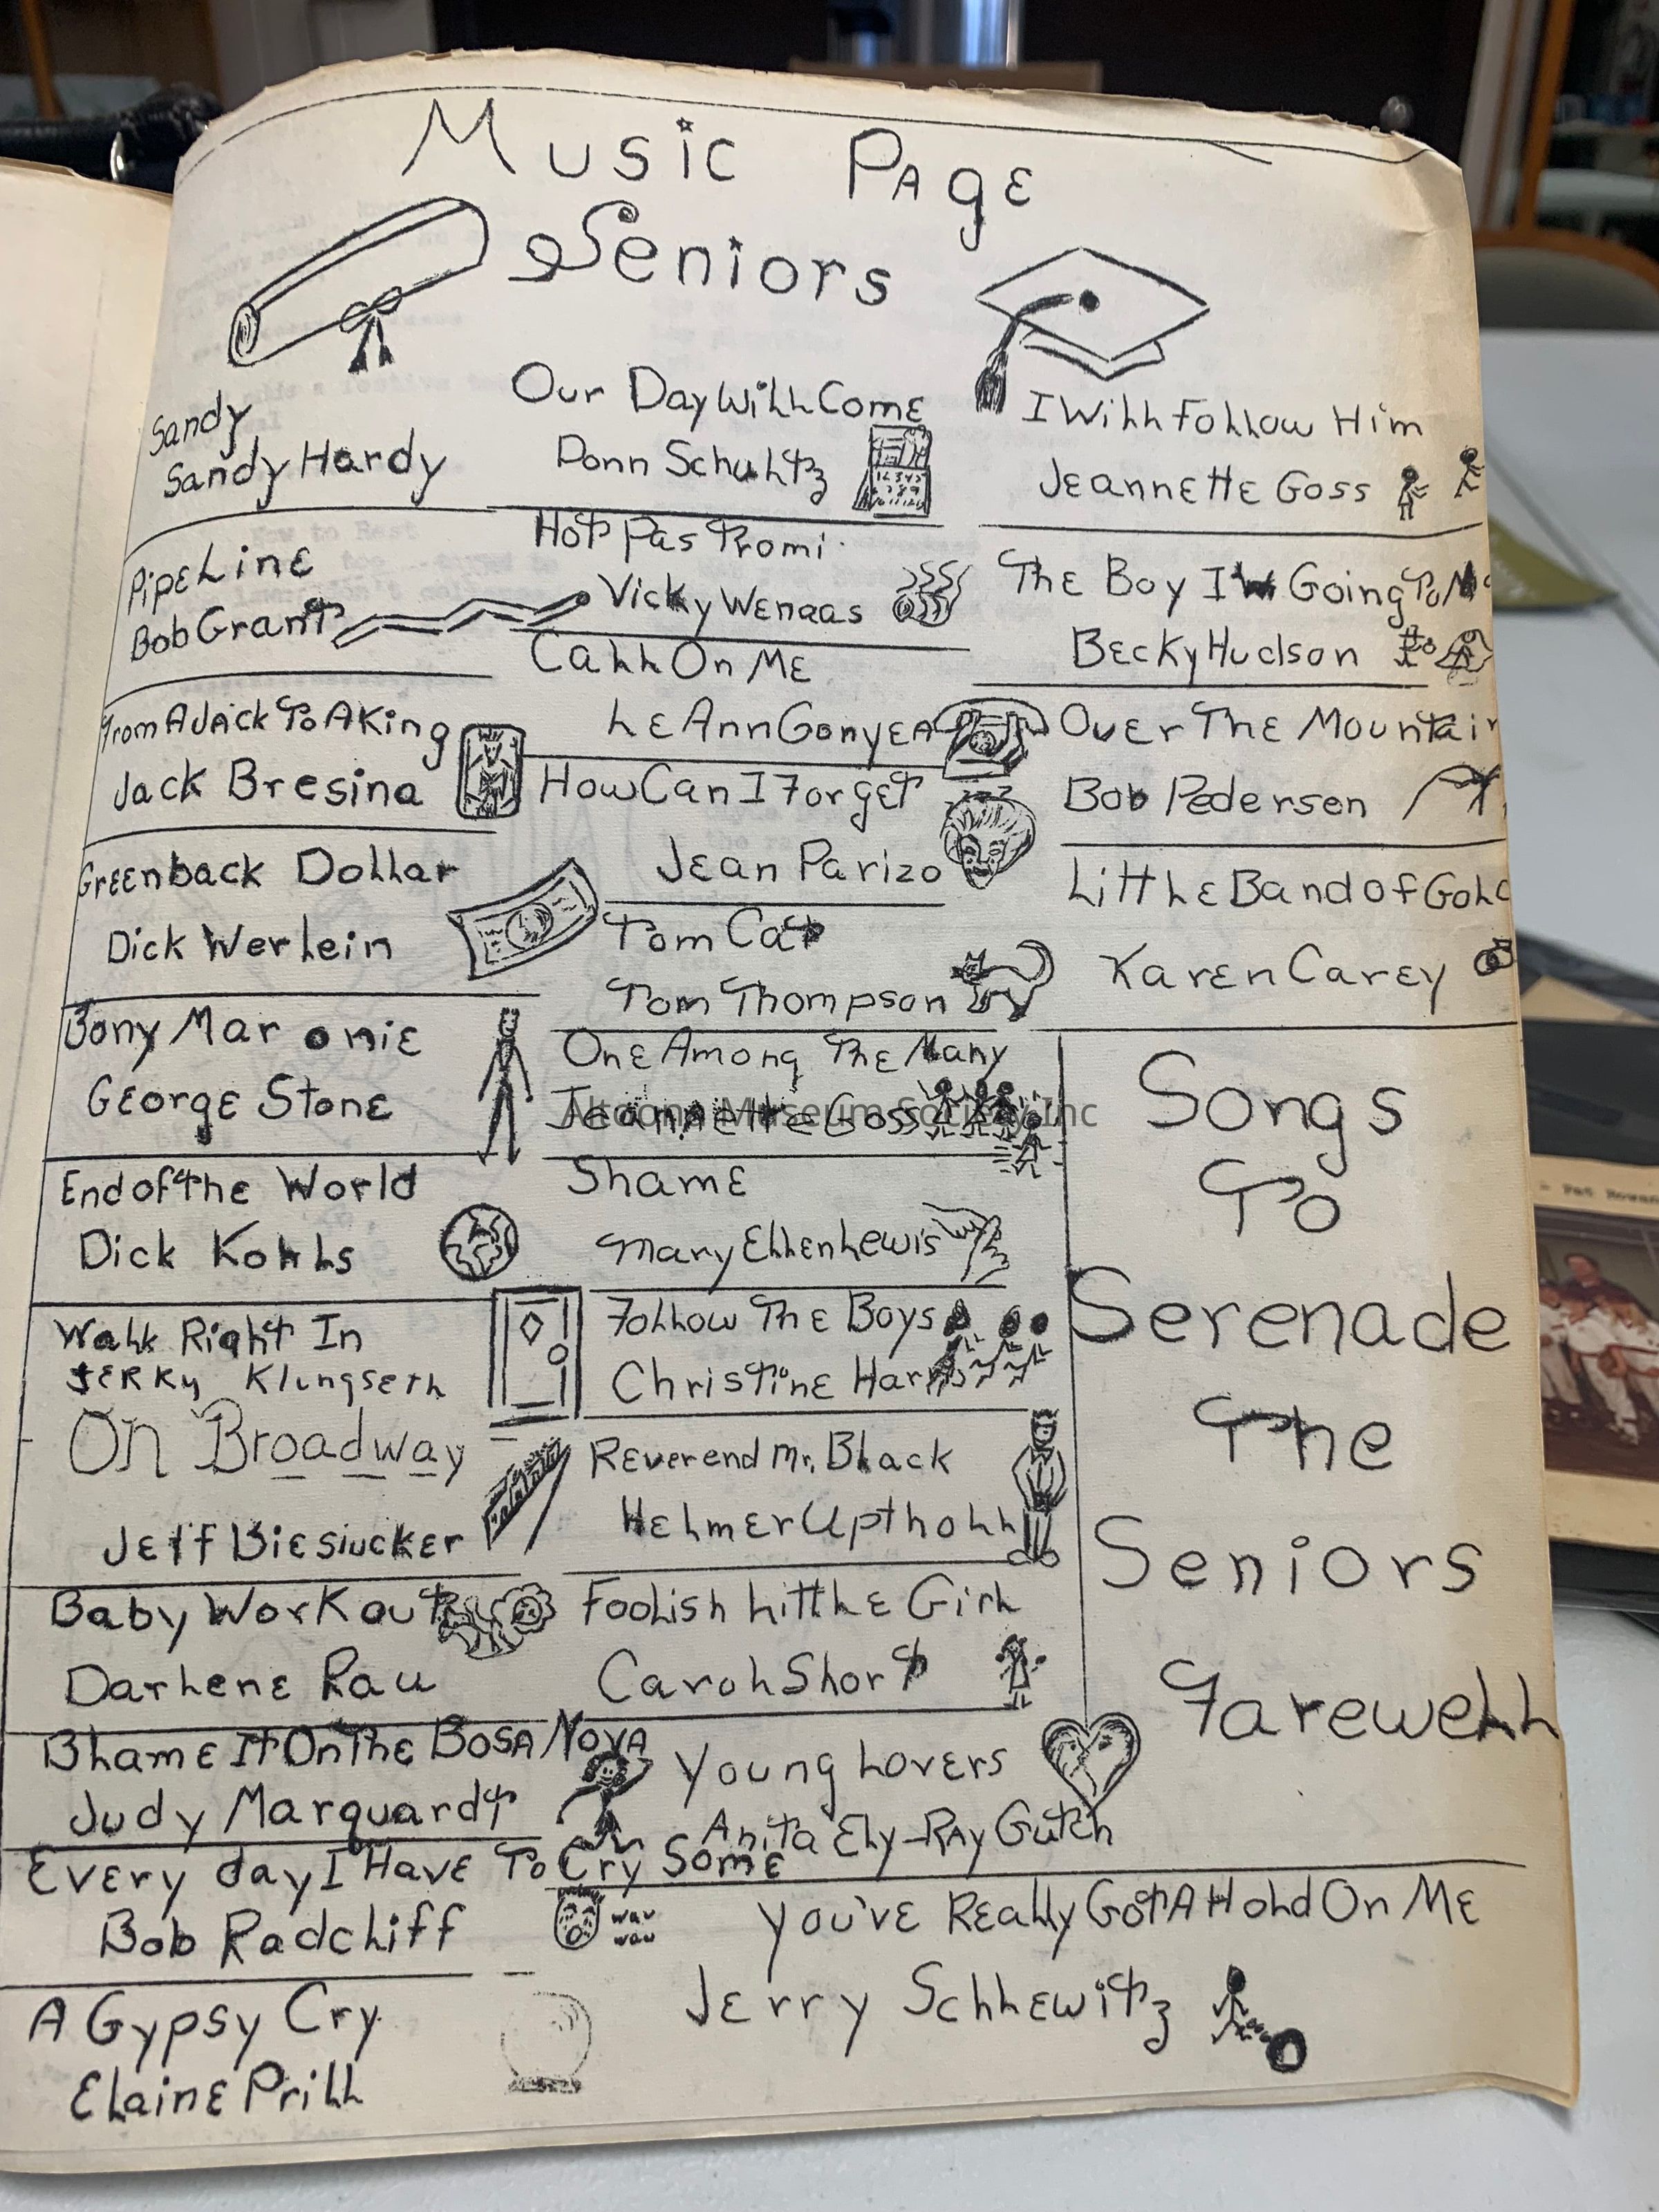 Music Page
Seniors
Sandy
Sandy Hardy
Pipeline
Bob Grant
From A Jack To A King
Jack Bresina
Greenback Dollar
Dick Werlein
Bony Maronie
George Stone
End of The World
Dick Kohls
Walk Right In
Jerry Klungseth
On Broadway
Jeff Biesiucker
Baby Workout
Darlene Rau
Blame It On The Bosa Nova
Judy Marquardt
Every day I Have To Cry Some
Bob Radcliff
wav
wav
A Gypsy Cry
Elaine Prill
Our Day Will Come
Donn Schultz
Hot Pastromi
Vicky Wenaas
Call On Me
LeAnn Gonyea
How Can I Forget
Jean Parizo
Tom Cat
Tom Thompson
One Among The Many
Jeannette Goss
Shame
Mary Ellen Lewis
Follow The Boys
Christine
Reverend Mr. Black
Helmer Uptholl
Foolish Little Girl
Carol Short
Young Lovers
Anita Ely-Ray Gutch
You've Really Got A Hold On Me
Jerry Schlewitz
I Will Follow Him
Jeannette Goss
The Boy I'm Going To
Becky Hudson
Over The Mountain
Bob Pedersen
Little Band of Gold
Karen Carey
Songs
To
Serenade
The
Seniors
Farewell
Altoona Museum Society, Inc